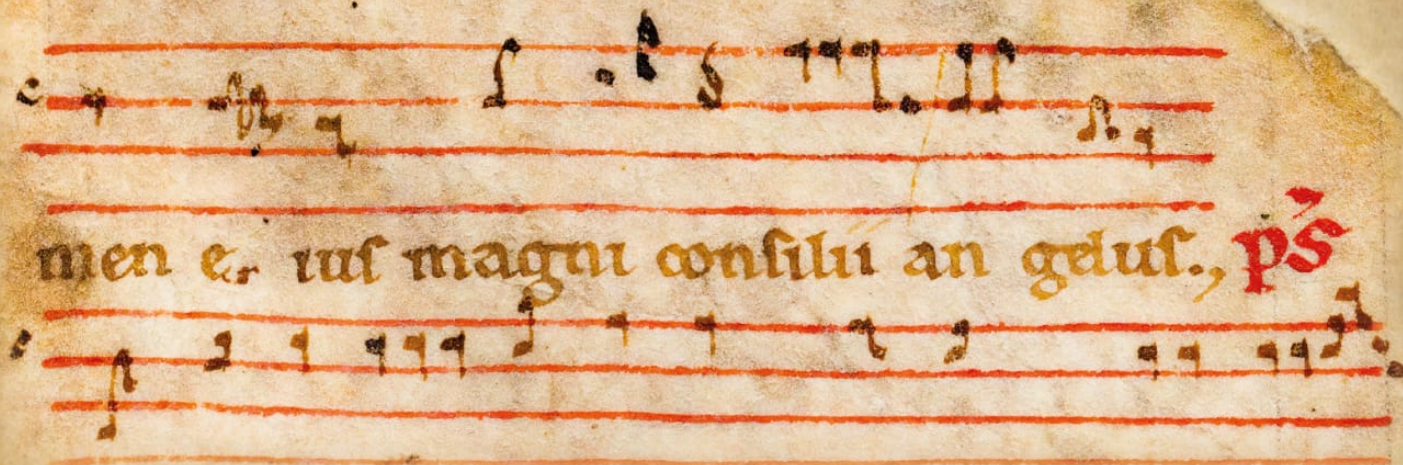 men e ius magni consilii an gelus., ps